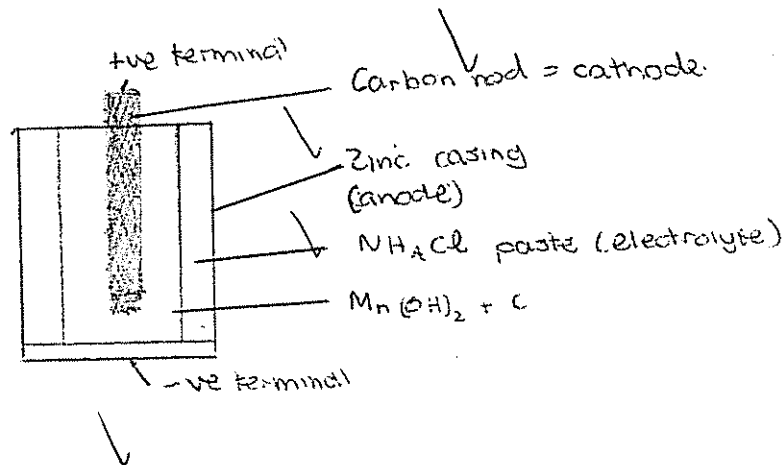 +ve terminal
Carbon rod = cathode.
Zinc casing
(anode)
NH₄Cl paste (electrolyte)
Mn(OH)₂ + C
-ve terminal